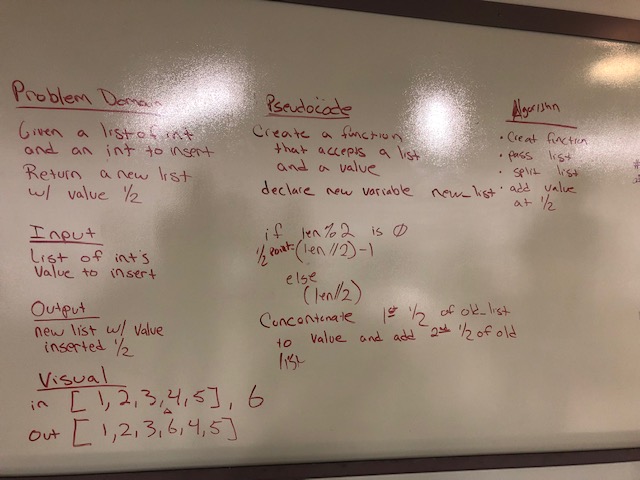 Problem Domain
Given a list of int
and an int to insert
Return a new list
w/ value 1/2
Input
List of int's
Value to insert
Output
new list w/ value
inserted 1/2
Visual
in [1,2,3,4,5], 6
out [1,2,3,6,4,5]
Pseudocode
Create a function
that accepts a list
and a value
declare new variable new_list
if len%2 is 0
1/2 point=(len//2)-1
else
(len//2)
Concontonate 1st 1/2 of old_list
to value and add 2nd 1/2 of old
list
Algorithm
• Creat function
• pass list
• split list
• add value
at 1/2